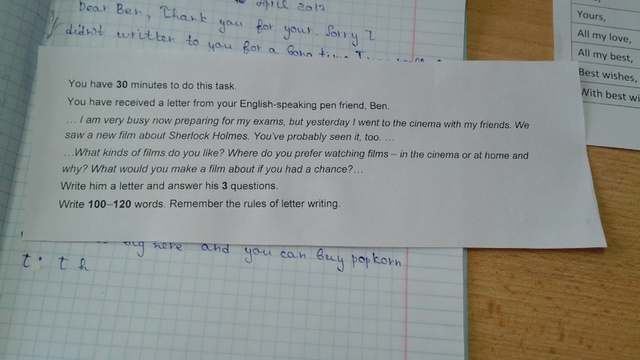 april 2017
Dear Ben, Thank you for your. Sorry I
didn't writter to you for a long
Yours,
All my love,
All my best,
Best wishes,
With best wi
You have 30 minutes to do this task.
You have received a letter from your English-speaking pen friend, Ben.
… I am very busy now preparing for my exams, but yesterday I went to the cinema with my friends. We
saw a new film about Sherlock Holmes. You've probably seen it, too. …
…What kinds of films do you like? Where do you prefer watching films – in the cinema or at home and
why? What would you make a film about if you had a chance?…
Write him a letter and answer his 3 questions.
Write 100–120 words. Remember the rules of letter writing.
big here and you can buy popkorn
t. t h